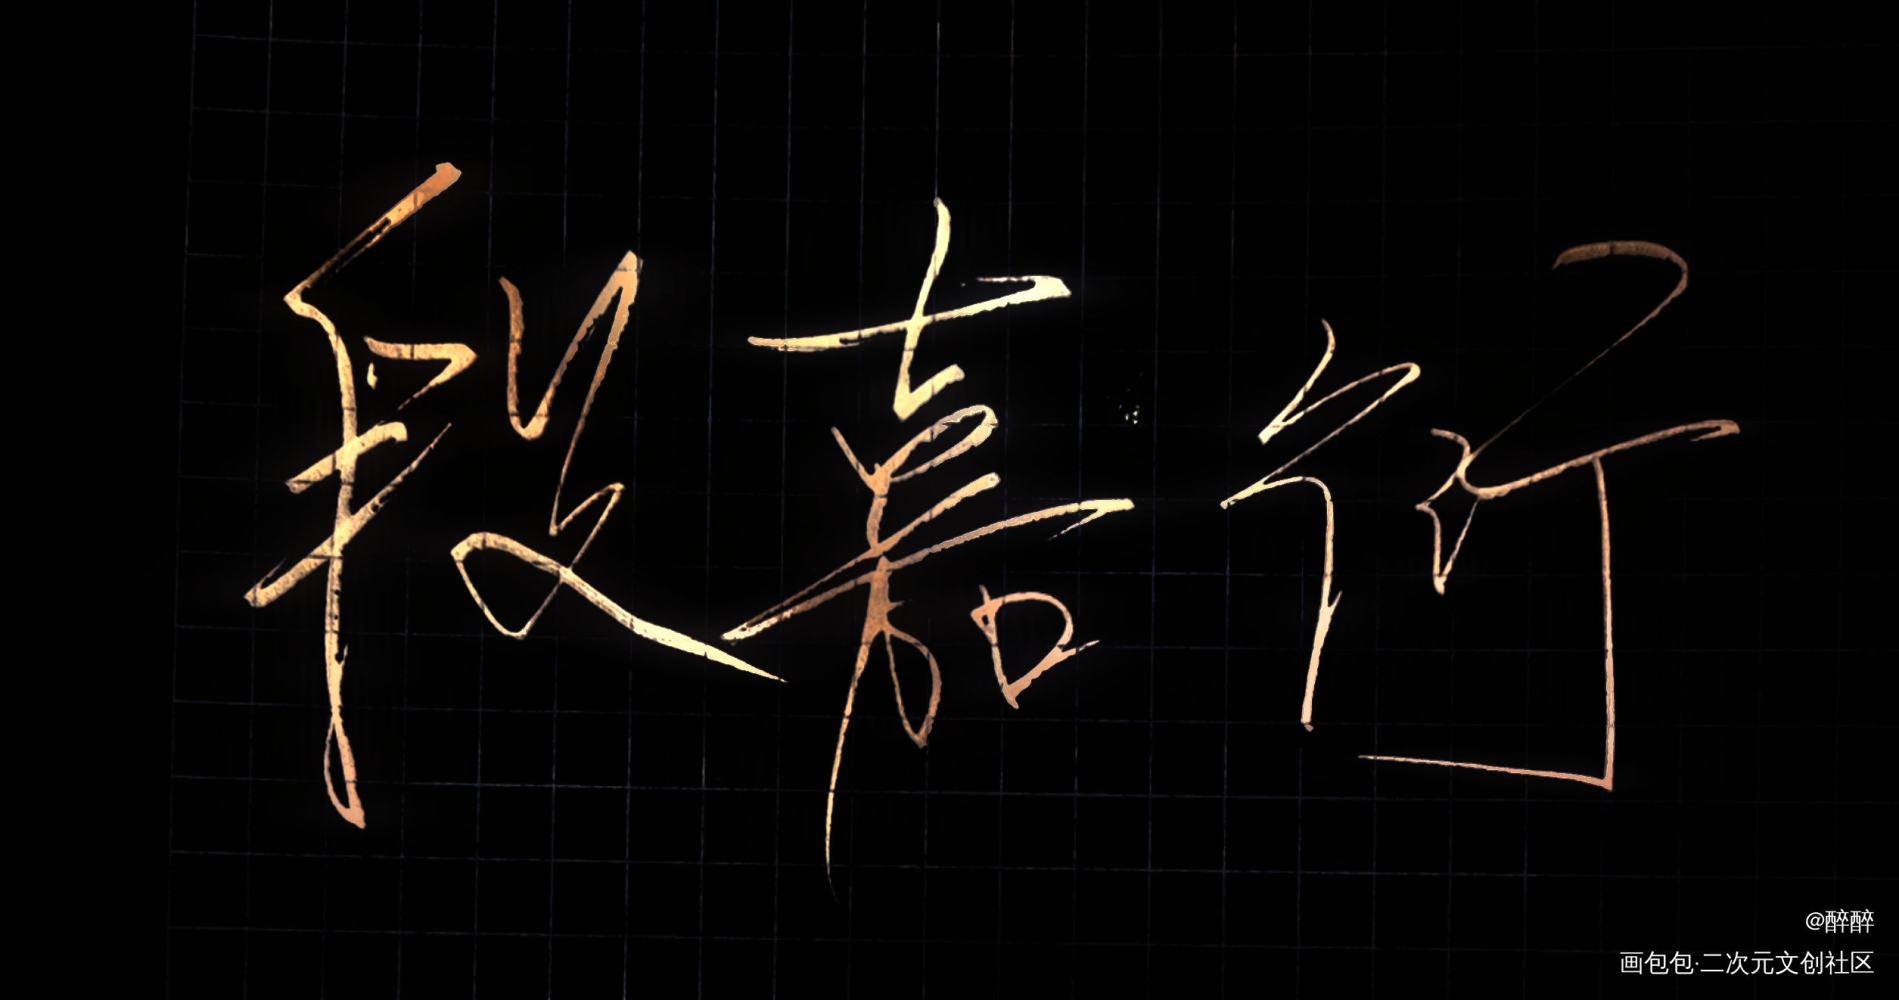 段嘉衍
@醉醉
画包包·二次元文创社区